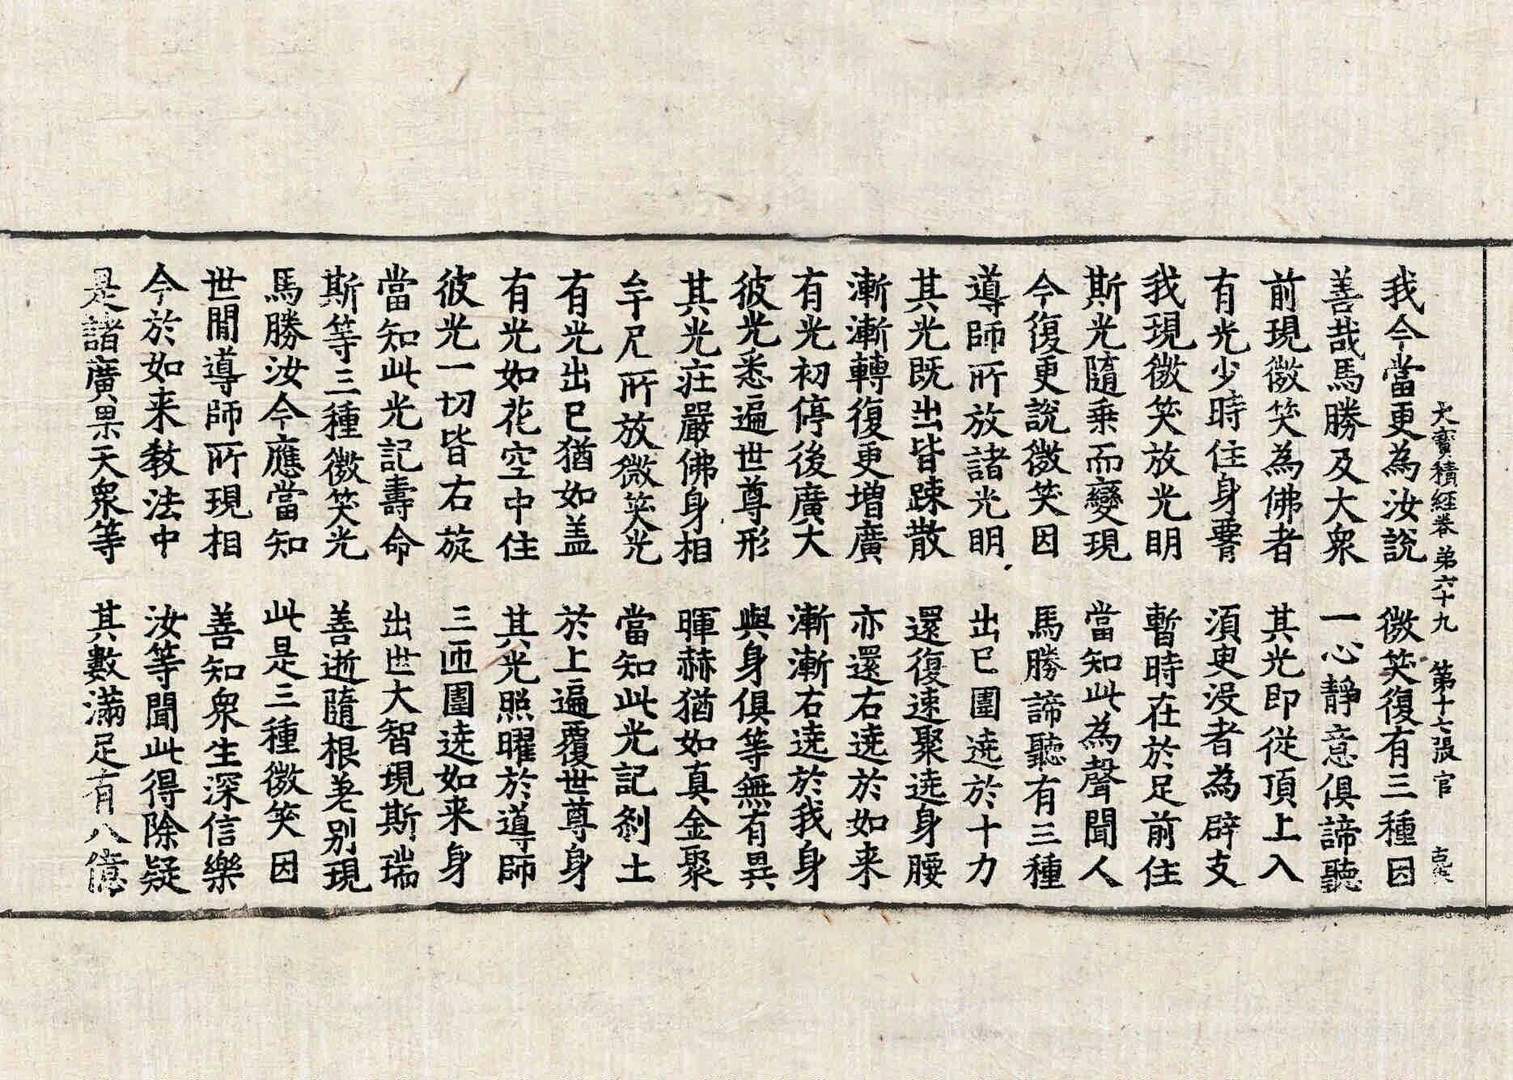 大寶積經卷第六十九　第十七張　官
我今當更為汝說　微笑復有三種因
善哉馬勝及大衆　一心靜意俱諦聽
前現微笑為佛者　其光即從頂上入
有光少時住身要月　須臾没者為辟支
我現微笑放光明　暫時在於足前住
斯光隨乗而變現　當知此為聲聞人
今復更說微笑因　馬勝諦聽有三種
導師所放諸光明　出已圍遶於十力
其光既出皆踈散　還復速聚遶身腰
漸漸轉復更增廣　亦還右遶於如来
有光初停後廣大　漸漸右遶於我身
彼光悉遍世尊形　與身俱等無有異
其光莊嚴佛身相　暉赫猶如真金聚
牟尼所放微笑光　當知此光記刹土
有光出已猶如盖　於上遍覆世尊身
有光如花空中住　其光照曜於導師
彼光一切皆右旋　三匝圍遶如来身
當知此光記壽命　出世大智現斯瑞
斯等三種微笑光　善逝隨根差別現
馬勝汝今應當知　此是三種微笑因
世間導師所現相　善知衆生深信樂
今於如来教法中　汝等聞此得除疑
是諸廣果天衆等　其數滿足有八億